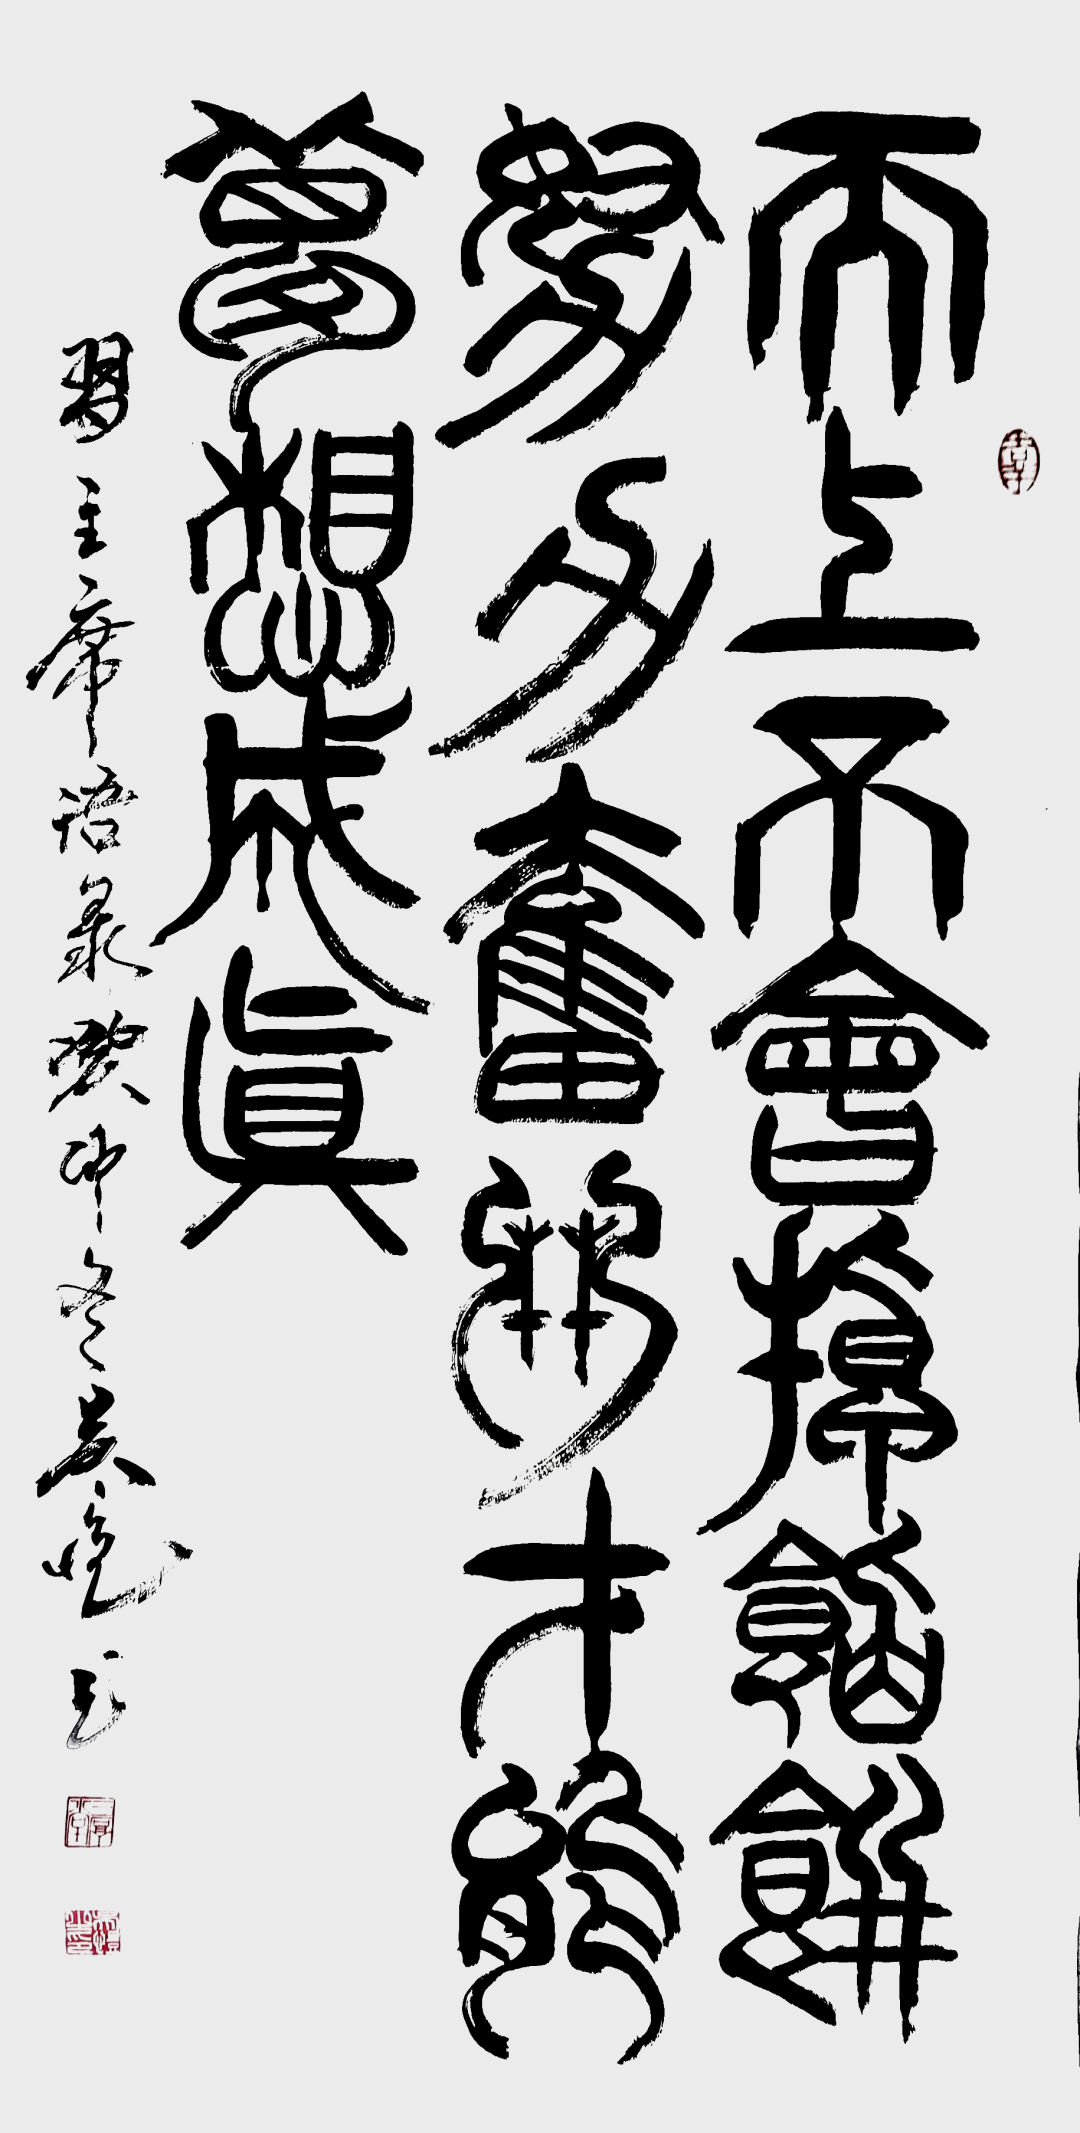 天上不會掉餡餅
努力奮鬥才能
夢想成真
習主席語录癸卯冬